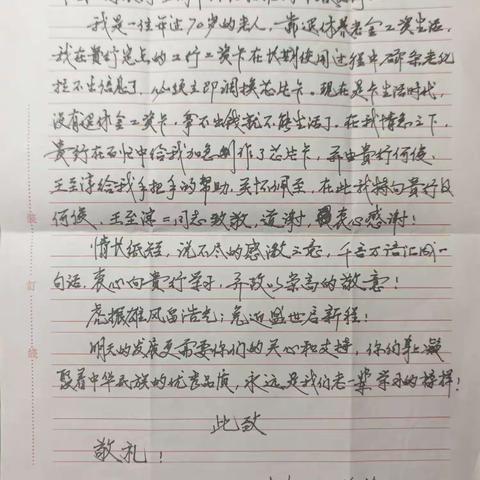 我是一位年过70岁的老人，靠退休养老金工资生活，
我在贵行定点的工行工资卡在长期使用过程中磁条老化
拉不出信息了，必须立即调换芯片卡。现在是卡生活时代，
没有退休金工资卡，拿不出钱就不能生活了。在我情急之下，
贵行在百忙中给我加急制作了芯片卡，并由贵行何俊、
王至淳给我手把手的帮助，关怀佩至，在此我特向贵行及
何俊、王至淳二同志致敬，道谢，衷心感谢！
情长纸短，说不尽的感激之意，千言万语汇成一
句话，衷心向贵行学习，并致以崇高的敬意！
虎振雄风留浩气；兔迎盛世启新程！
明天的发展更需要你们的关心和支持，你们身上凝
聚着中华民族的优秀品质，永远是我们老一辈学习的榜样！
此致
敬礼！
装
订
线